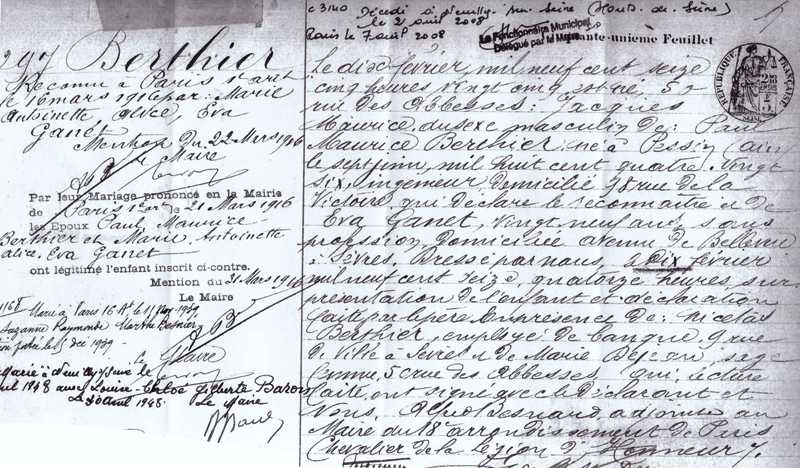 C 3140 Décédé à Neuilly sur Seine (Hauts de Seine)
le 2 avril 2008
Paris le 7 avril 2008
Le Fonctionnaire Municipal
Délégué par le Maire
ante-unième Feuillet
RÉPUBLIQUE FRANÇAISE
297 Berthier
Reconnu à Paris 1er arrt
le 16 mars 1916 par: Marie
Antoinette, Alice, Eva
Ganet
Mention du 22 Mars 1916
Le Maire
Par leur Mariage prononcé en la Mairie
de Paris 1er arrt le 21 Mars 1916
les Epoux Paul Maurice
Berthier et Marie Antoinette
Alice Eva Ganet
ont légitimé l'enfant inscrit ci-contre.
Mention du 31 Mars 1916
Le Maire
Marié à Paris 16e Art le 11 1939
Suzanne Raymonde Marthe
1939
Le Maire
Marié à Neuilly s/Seine le
1948 avec Louise Gilberte Baron
Le Maire
Le dix février, mil neuf cent seize
cinq heures vingt cinq, est né, 50
rue des Abbesses: Jacques
Maurice, du sexe masculin de: Paul
Maurice Berthier, né à Pessin (Ain
le sept juin, mil huit cent quatre vingt
six, ingénieur, domicilié 98 rue de la
Victoire, qui déclare le reconnaître et de
Eva Ganet, vingt neuf ans, sans
profession, domiciliée avenue de Bellevue
à Sèvres. Dressé par nous, le dix février
mil neuf cent seize, quatorze heures, sur
présentation de l'enfant et déclaration
faite par le père en présence de: Nicolas
Berthier, employé de banque, 9 rue
de Ville à Sèvres et de Marie, sage
femme, 50 rue des Abbesses qui, lecture
faite, ont signé avec le déclarant et
Nous, Alfred Besnard, adjoint au
Maire du 18e arrondissement de Paris
Chevalier de la Légion d'Honneur